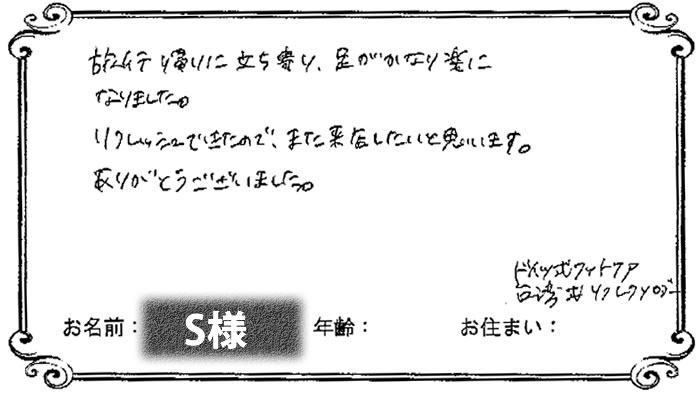 旅行帰りに立ち寄り、足がかなり楽に
なりました。
リフレッシュできたので、また来店したいと思います。
ありがとうございました。
ドイツ式フットケア
台湾式リフレクソロジー
お名前： S様 年齢： お住まい：